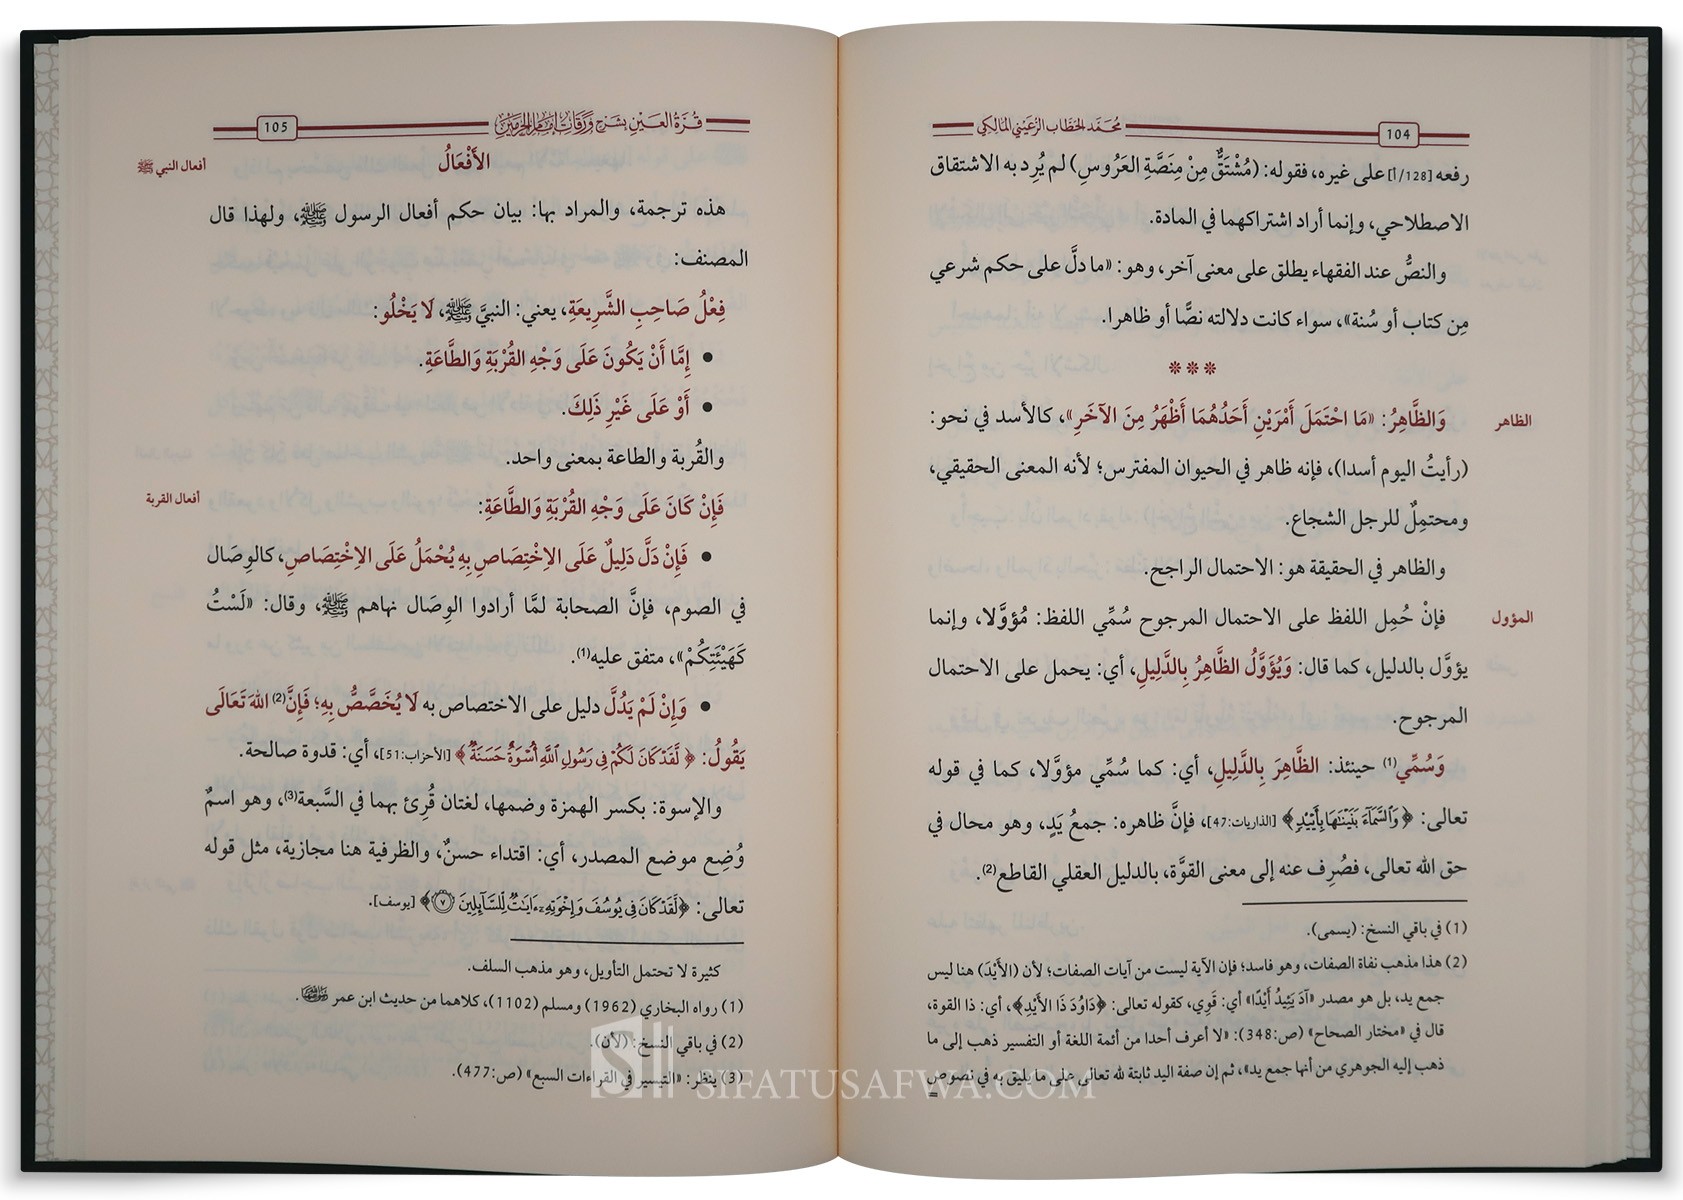 104
محمد الحطاب الرعيني المالكي
رفعه [128/أ] على غيره، فقوله: (مُشْتَقٌّ مِنْ مِنَصَّةِ العَرُوسِ) لم يُرِد به الاشتقاق
الاصطلاحي، وإنما أراد اشتراكهما في المادة.
والنصُّ عند الفقهاء يطلق على معنى آخر، وهو: «ما دلَّ على حكم شرعي
مِن كتاب أو سُنة»، سواء كانت دلالته نصًّا أو ظاهرا.
***
الظاهر
وَالظَّاهِرُ: «مَا احْتَمَلَ أَمْرَيْنِ أَحَدُهُمَا أَظْهَرُ مِنَ الآخَرِ»، كالأسد في نحو:
(رأيتُ اليوم أسدا)، فإنه ظاهر في الحيوان المفترس؛ لأنه المعنى الحقيقي،
ومحتمِلٌ للرجل الشجاع.
والظاهر في الحقيقة هو: الاحتمال الراجح.
المؤول
فإنْ حُمِل اللفظ على الاحتمال المرجوح سُمِّي اللفظ: مُؤوَّلا، وإنما
يؤوَّل بالدليل، كما قال: وَيُؤَوَّلُ الظَّاهِرُ بِالدَّلِيلِ، أي: يحمل على الاحتمال
المرجوح.
وَسُمِّي(1) حينئذ: الظَّاهِرَ بِالدَّلِيلِ، أي: كما سُمِّي مؤوَّلا، كما في قوله
تعالى: ﴿وَٱلسَّمَآءَ بَنَيْنَٰهَا بِأَيْيْدٍ﴾ [الذاريات:47]، فإنَّ ظاهره: جمعُ يَدٍ، وهو محال في
حق الله تعالى، فصُرِف عنه إلى معنى القوَّة، بالدليل العقلي القاطع(2).
(1) في باقي النسخ: (يسمى).
(2) هذا مذهب نفاة الصفات، وهو فاسد؛ فإن الآية ليست من آيات الصفات؛ لأن (الأَيْدَ) هنا ليس
جمع يد، بل هو مصدر «آدَ يَئِيدُ أَيْدًا» أي: قَوِي، كقوله تعالى: ﴿دَاوُدَ ذَا الأَيْدِ﴾، أي: ذا القوة،
قال في «مختار الصحاح» (ص:348): «لا أعرف أحدا من أئمة اللغة أو التفسير ذهب إلى ما
ذهب إليه الجوهري من أنها جمع يد»، ثم إن صفة اليد ثابتة لله تعالى على ما يليق به في نصوص
=
قرة العين بشرح ورقات إمام الحرمين
105
أفعال النبي ﷺ
الأَفْعَالُ
هذه ترجمة، والمراد بها: بيان حكم أفعال الرسول ﷺ، ولهذا قال
المصنف:
فِعْلُ صَاحِبِ الشَّرِيعَةِ، يعني: النبيَّ ﷺ، لَا يَخْلُو:
• إِمَّا أَنْ يَكُونَ عَلَى وَجْهِ القُرْبَةِ وَالطَّاعَةِ.
• أَوْ عَلَى غَيْرِ ذَلِكَ.
والقُربة والطاعة بمعنى واحد.
أفعال القربة
فَإِنْ كَانَ عَلَى وَجْهِ القُرْبَةِ وَالطَّاعَةِ:
• فَإِنْ دَلَّ دَلِيلٌ عَلَى الاِخْتِصَاصِ بِهِ يُحْمَلُ عَلَى الاِخْتِصَاصِ، كالوِصَال
في الصوم، فإنَّ الصحابة لمَّا أرادوا الوِصَال نهاهم ﷺ، وقال: «لَسْتُ
كَهَيْئَتِكُمْ»، متفق عليه(1).
• وَإِنْ لَمْ يَدُلَّ دليل على الاختصاص به لَا يُخَصَّصُ بِهِ؛ فَإِنَّ(2) اللهَ تَعَالَى
يَقُولُ: ﴿لَّقَدْ كَانَ لَكُمْ فِي رَسُولِ ٱللَّهِ أُسْوَةٌ حَسَنَةٌ﴾ [الأحزاب:51]، أي: قدوة صالحة.
والإسوة: بكسر الهمزة وضمها، لغتان قُرِئ بهما في السَّبعة(3)، وهو اسمٌ
وُضِع موضع المصدر، أي: اقتداء حسنٌ، والظرفية هنا مجازية، مثل قوله
تعالى: ﴿لَّقَدْ كَانَ فِي يُوسُفَ وَإِخْوَتِهِۦٓ ءَايَٰتٌ لِّلسَّآئِلِينَ ٧﴾ [يوسف].
كثيرة لا تحتمل التأويل، وهو مذهب السلف.
(1) رواه البخاري (1962) ومسلم (1102)، كلاهما من حديث ابن عمر رضي الله عنهما.
(2) في باقي النسخ: (لأن).
(3) ينظر: «التيسير في القراءات السبع» (ص:477).
SIFATUSAFWA.COM